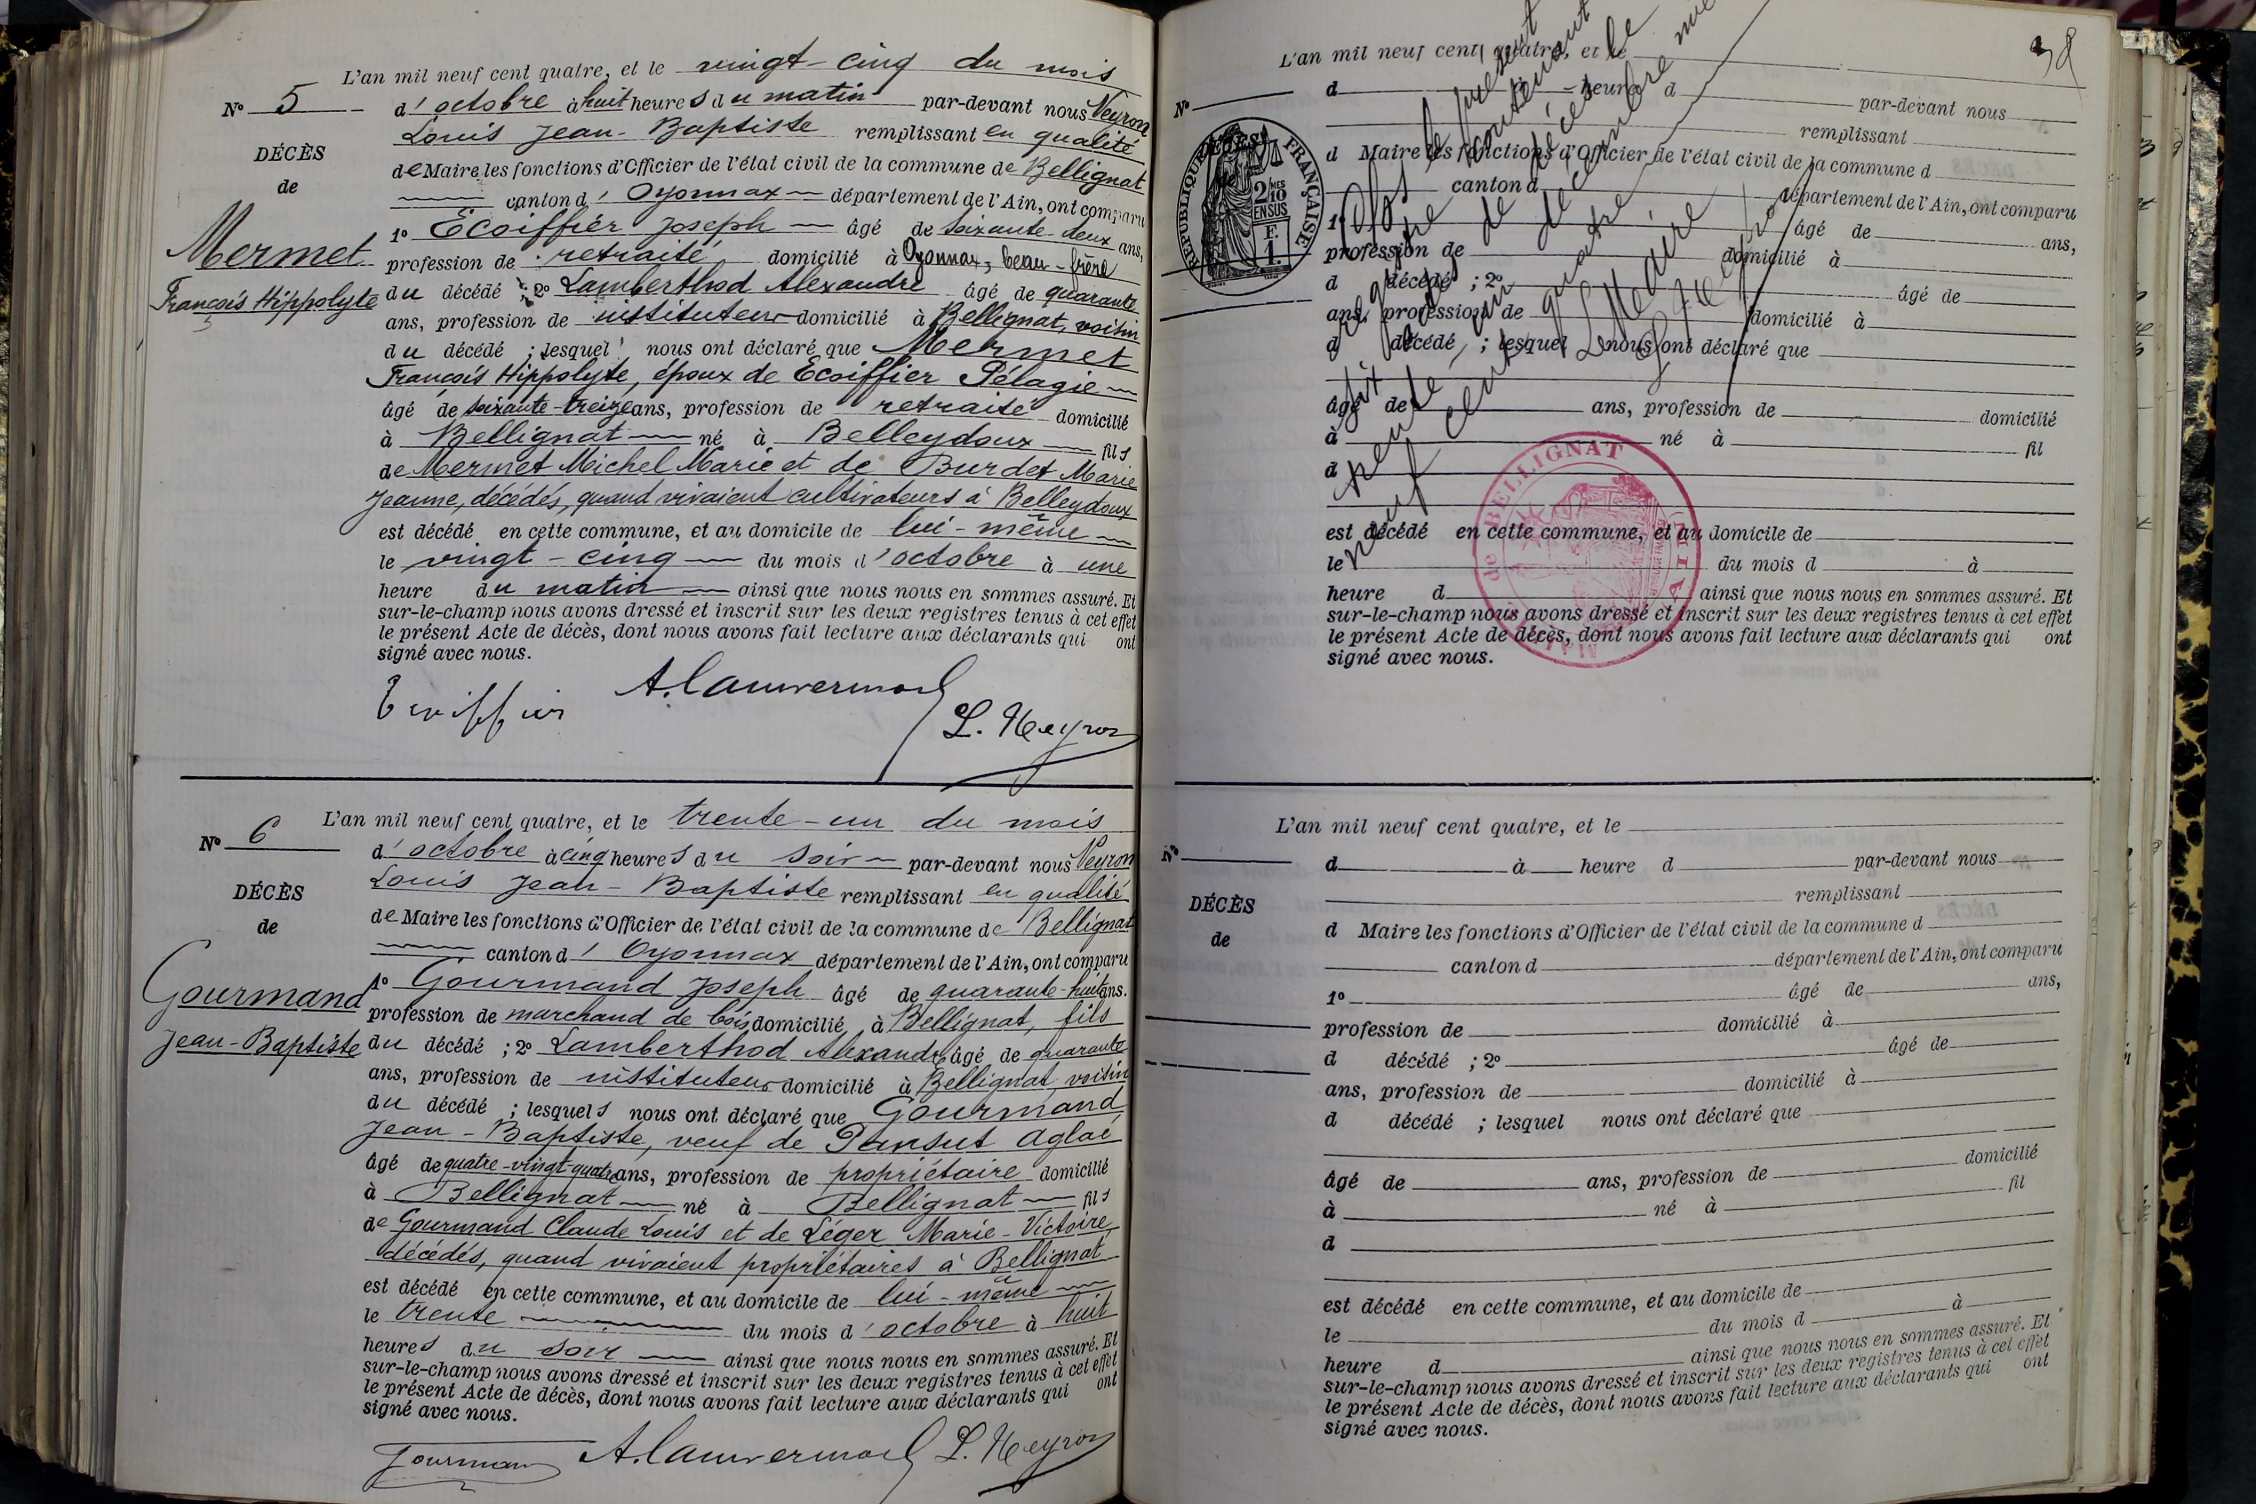 L'an mil neuf cent quatre, et le vingt-cinq du mois
N° 5 d'octobre à huit heures du matin par-devant nous Veyron
Louis Jean-Baptiste remplissant en qualité
DÉCÈS
de Maire les fonctions d'Officier de l'état civil de la commune de Bellignat
de
canton d'Oyonnax département de l'Ain, ont comparu
1° Ecoiffier Joseph âgé de soixante-deux ans,
Mermet
profession de retraité domicilié à Oyonnax, beau-frère
François Hippolyte
du décédé ; 2° Lamberthod Alexandre âgé de quarante
ans, profession de instituteur domicilié à Bellignat, voisin
du décédé ; lesquel nous ont déclaré que Mermet
François Hippolyte, époux de Ecoiffier Pélagie
âgé de soixante-treize ans, profession de retraité domicilié
à Bellignat né à Belleydoux fils
de Mermet Michel Marie et de Burdet Marie
Jeanne, décédés, quand vivaient cultivateurs à Belleydoux
est décédé en cette commune, et au domicile de lui-même
le vingt-cinq du mois d'octobre à une
heure du matin ainsi que nous nous en sommes assuré. Et
sur-le-champ nous avons dressé et inscrit sur les deux registres tenus à cet effet
le présent Acte de décès, dont nous avons fait lecture aux déclarants qui ont
signé avec nous.
L. Veyron
L'an mil neuf cent quatre, et le trente-un du mois
N° 6 d'octobre à cinq heures du soir par-devant nous Veyron
Louis Jean-Baptiste remplissant en qualité
DÉCÈS
de Maire les fonctions d'Officier de l'état civil de la commune de Bellignat
de
canton d'Oyonnax département de l'Ain, ont comparu
1° Gourmand Joseph âgé de quarante-huit ans.
Gourmand
profession de marchand de bois domicilié à Bellignat, fils
Jean-Baptiste
du décédé ; 2° Lamberthod Alexandre âgé de quarante
ans, profession de instituteur domicilié à Bellignat, voisin
du décédé ; lesquels nous ont déclaré que Gourmand
Jean-Baptiste, veuf de Pansut Aglaé
âgé de quatre-vingt-quatre ans, profession de propriétaire domicilié
à Bellignat né à Bellignat fils
de Gourmand Claude Louis et de Léger Marie-Victoire
décédés, quand vivaient propriétaires à Bellignat
est décédé en cette commune, et au domicile de lui-même
le trente du mois d'octobre à huit
heures du soir ainsi que nous nous en sommes assuré. Et
sur-le-champ nous avons dressé et inscrit sur les deux registres tenus à cet effet
le présent Acte de décès, dont nous avons fait lecture aux déclarants qui ont
signé avec nous.
Gourmand L. Veyron
38
L'an mil neuf cent quatre, et le
N° d heure d par-devant nous
remplissant
DÉCÈS
d Maire les fonctions d'Officier de l'état civil de la commune d
canton d département de l'Ain, ont comparu
1° âgé de ans,
profession de domicilié à
d décédé ; 2° âgé de
ans, profession de domicilié à
d décédé ; lesquel nous ont déclaré que
âgé de ans, profession de domicilié
à né à fil
d
est décédé en cette commune, et au domicile de
le du mois d à
heure d ainsi que nous nous en sommes assuré. Et
sur-le-champ nous avons dressé et inscrit sur les deux registres tenus à cet effet
le présent Acte de décès, dont nous avons fait lecture aux déclarants qui ont
signé avec nous.
RÉPUBLIQUE FRANÇAISE
2/10 EN SUS
F. 1.
Clos le présent
registre contenant
six actes de décès le
trente-un décembre mil
neuf cent quatre
Le Maire
L. Veyron
MAIRIE de BELLIGNAT (AIN)
L'an mil neuf cent quatre, et le
N° d à heure d par-devant nous
remplissant
DÉCÈS
d Maire les fonctions d'Officier de l'état civil de la commune d
de
canton d département de l'Ain, ont comparu
1° âgé de ans,
profession de domicilié à
d décédé ; 2° âgé de
ans, profession de domicilié à
d décédé ; lesquel nous ont déclaré que
âgé de ans, profession de domicilié
à né à fil
d
est décédé en cette commune, et au domicile de
le du mois d à
heure d ainsi que nous nous en sommes assuré. Et
sur-le-champ nous avons dressé et inscrit sur les deux registres tenus à cet effet
le présent Acte de décès, dont nous avons fait lecture aux déclarants qui ont
signé avec nous.